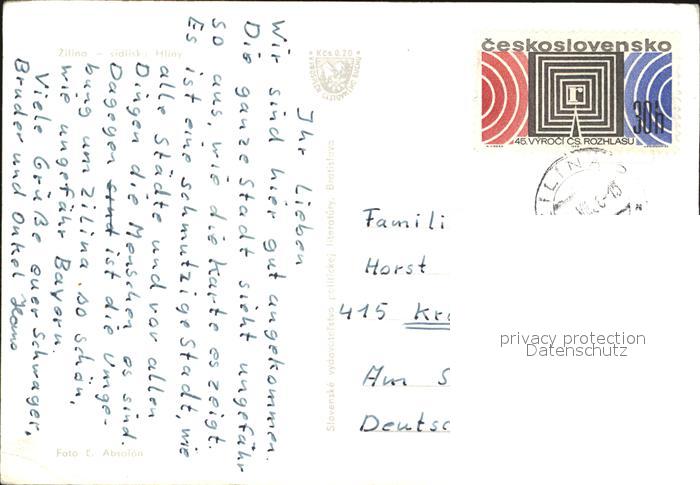 Žilina – sídlisko Hliny
Kčs 0,20
Ihr Lieben
Wir sind hier gut angekommen.
Die ganze Stadt sieht ungefähr
so aus, wie die Karte es zeigt.
Es ist eine schmutzige Stadt, wie
alle Städte und vor allen
Dingen die Menschen es sind.
Dagegen sind ist die Umge-
bung um Zilina so schön,
wie ungefähr Bayern.
Viele Grüße euer Schwager,
Bruder und Onkel Hans
Foto E. Absolón
Slovenské vydavateľstvo politickej literatúry, Bratislava
československo
r
30h
45. VÝROČÍ ČS. ROZHLASU
ŽILINA
Famili
Horst
415 Kre
Am S
Deutsc
privacy protection
Datenschutz